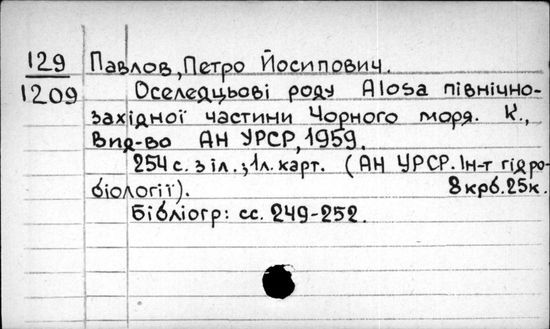 129 Павлов, Петро Йосипович.
1209 Оселедцьові роду Alosa північно-
західної частини Чорного моря. К.,
Вид-во АН УРСР, 1959.
254 с. з іл.; 1л. карт. (АН УРСР. Ін-т гідро-
біології). 8крб.25к.
Бібліогр: сс. 249-252.